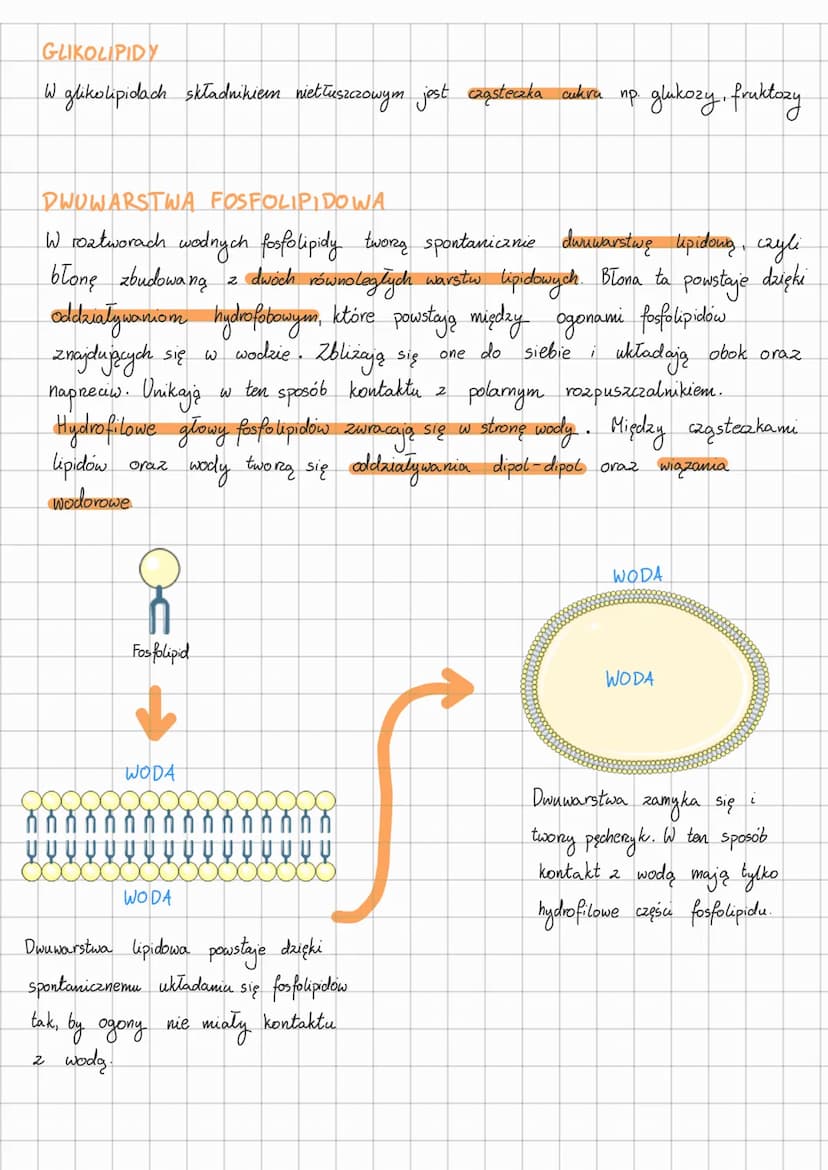 GLIKOLIPIDY
W glikolipidach składnikiem nietłuszczowym jest cząsteczka cukru np. glukozy, fruktozy
DWUWARSTWA FOSFOLIPIDOWA
W roztworach wodnych fosfolipidy tworzą spontanicznie dwuwarstwę lipidową, czyli
błonę zbudowaną z dwóch równoległych warstw lipidowych. Błona ta powstaje dzięki
oddziaływaniom hydrofobowym, które powstają między ogonami fosfolipidów
znajdujących się w wodzie. Zbliżają się one do siebie i układają obok oraz
naprzeciw. Unikają w ten sposób kontaktu z polarnym rozpuszczalnikiem.
Hydrofilowe głowy fosfolipidów zwracają się w stronę wody. Między cząsteczkami
lipidów oraz wody tworzą się oddziaływania dipol-dipol oraz wiązania
wodorowe
Fosfolipid
WODA
WODA
Dwuwarstwa lipidowa powstaje dzięki
spontanicznemu układaniu się fosfolipidów
tak, by ogony nie miały kontaktu
z wodą.
WODA
WODA
Dwuwarstwa zamyka się i
tworzy pęcherzyk. W ten sposób
kontakt z wodą mają tylko
hydrofilowe części fosfolipidu.